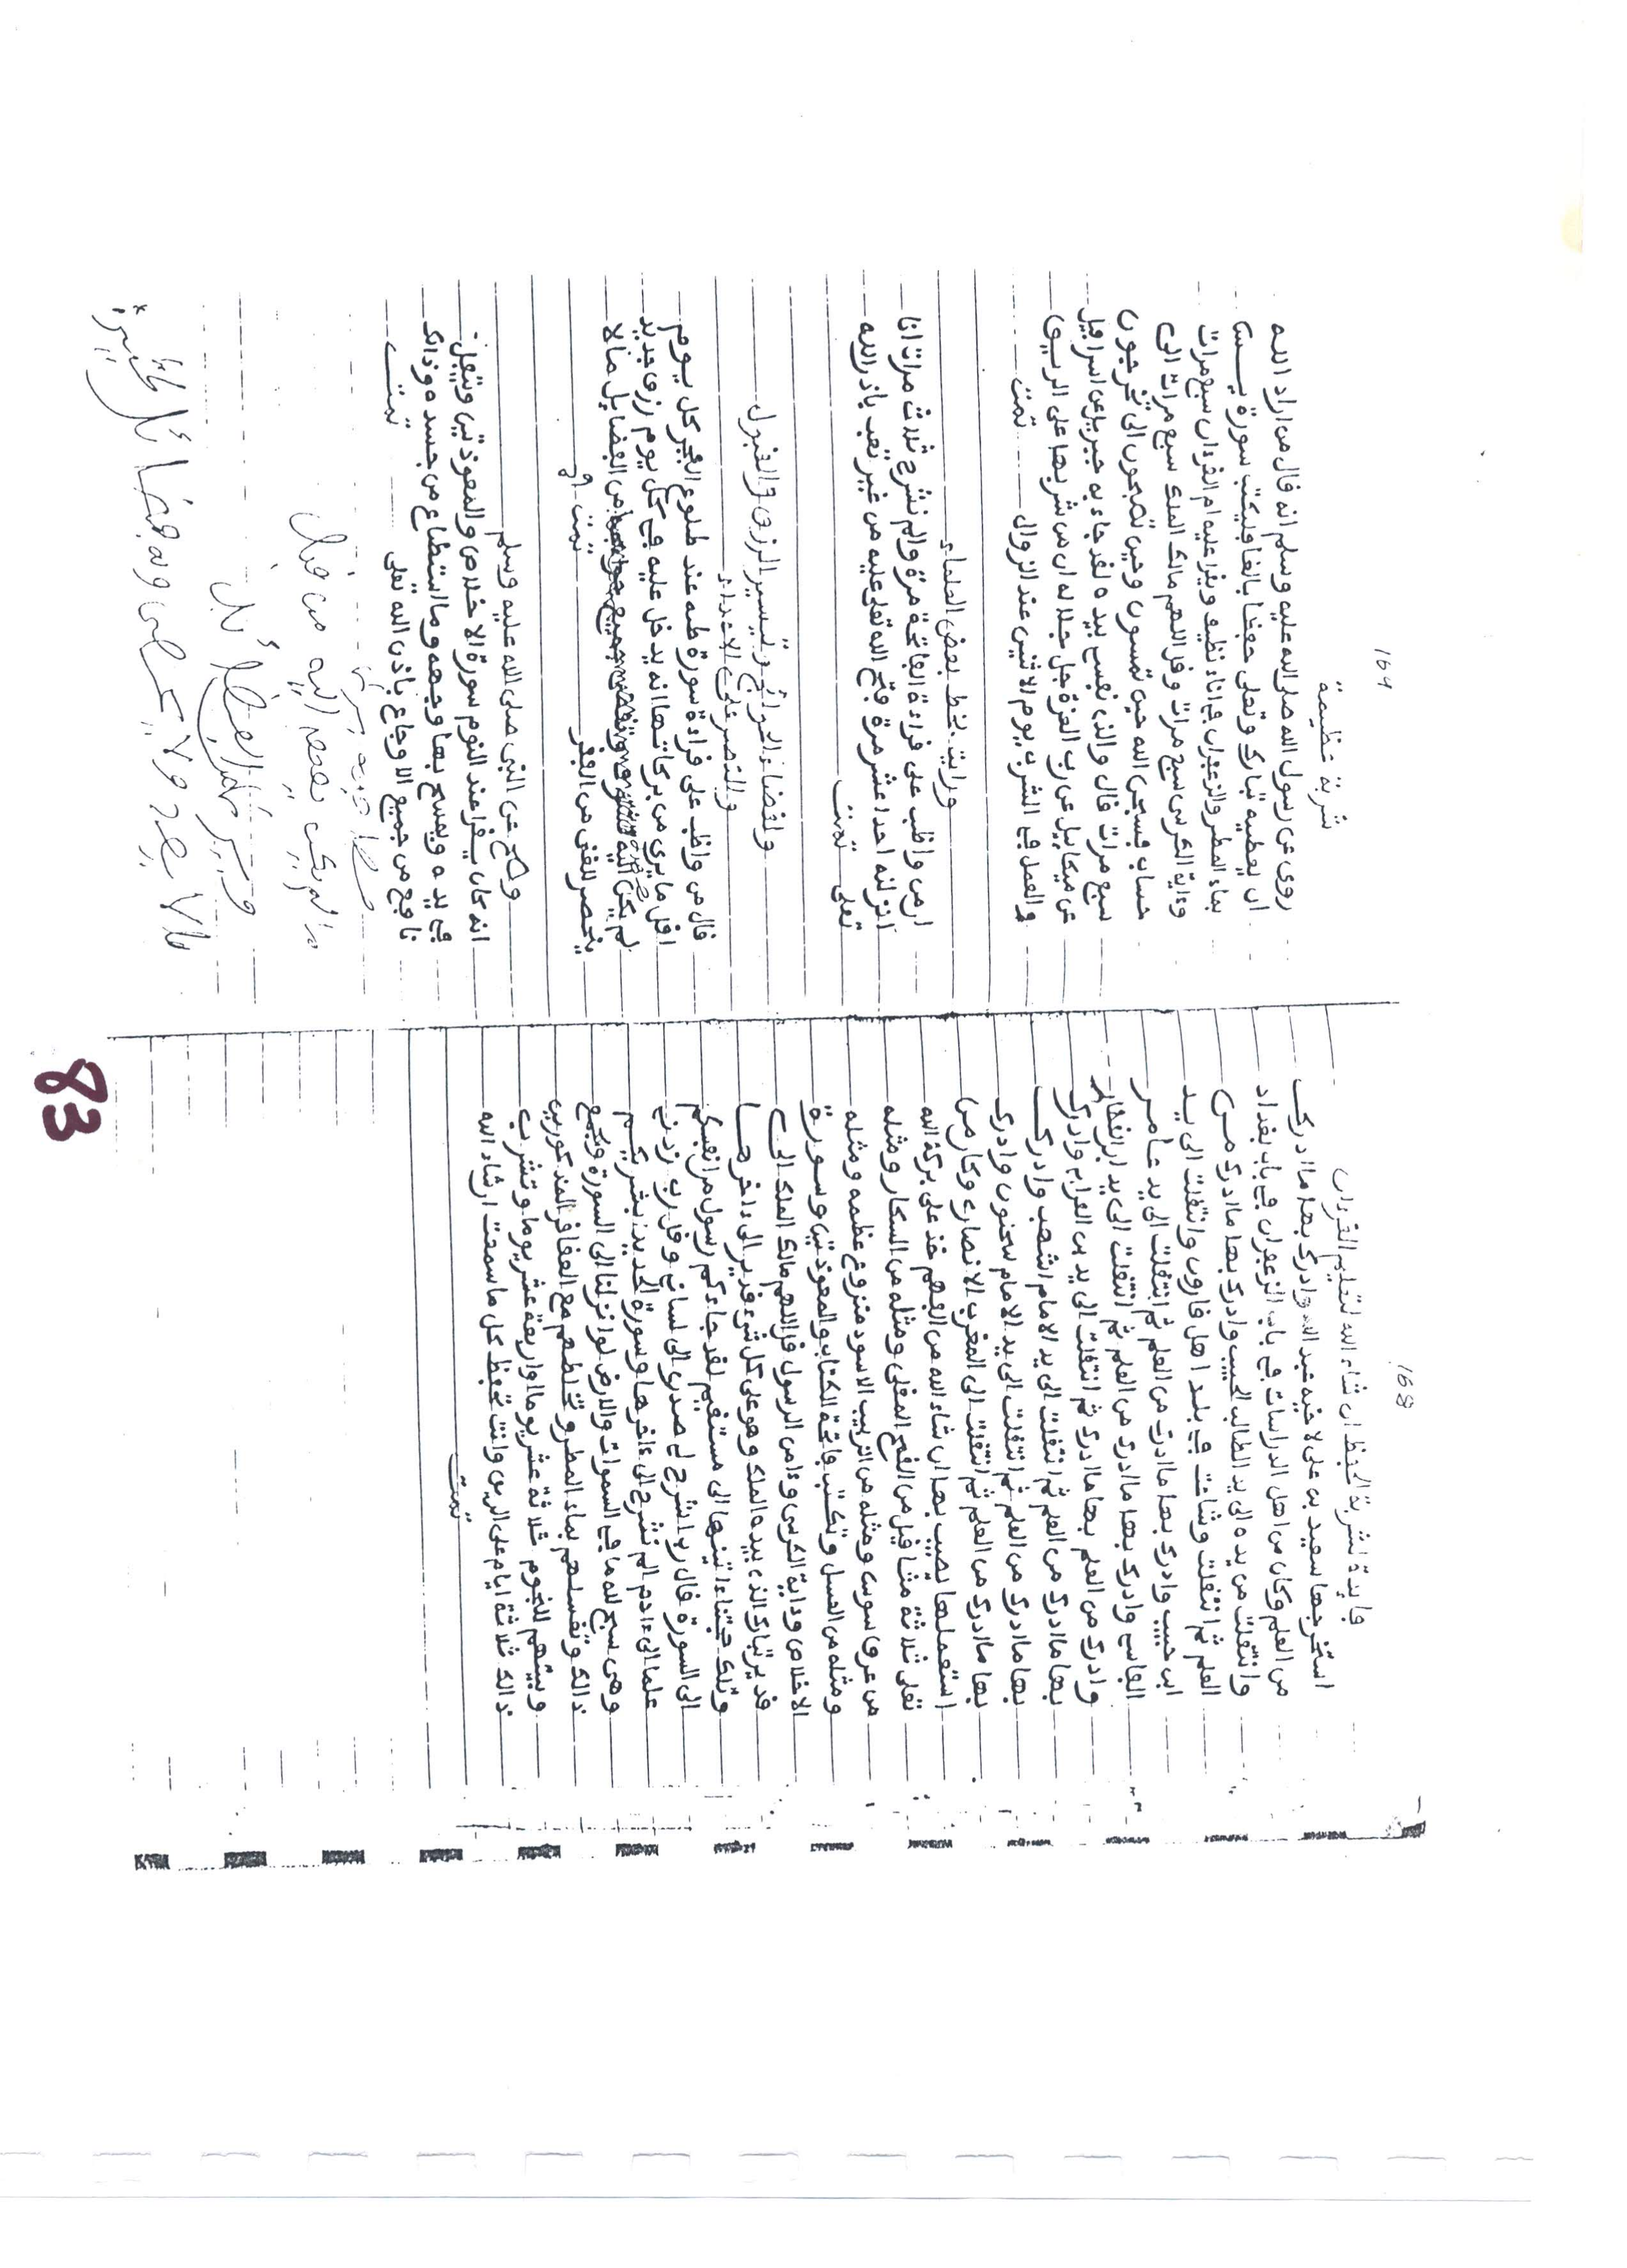 168
فايدة لشربة الحفظ ان شاء الله لتعليم القرءان
استخرجها سعيد بن على لاخيه عبد الله وادرك بها ما ادرك
من العلم وكان من اهل الدراسات في باب الزعفران في باب بغداد
وانتقلت من يده الى يد الطالب الحبيب وادرك بها ما ادرك من
العلم ثم انتقلت وشاعت في بلد اهل فارون وانتقلت الى يد
ابن حبيب وادرك بها ما ادرك من العلم ثم انتقلت الى يد عامر
القاسي وادرك بها ما ادرك من العلم ثم انتقلت الى يد ابن الغفار
وادرك من العلم بها ما ادرك ثم انتقلت الى يد بن العرابه وادرك
بها ما ادرك من العلم ثم انتقلت الى يد الامام اشهب وادرك
بها ما ادرك من العلم ثم انتقلت الى يد الامام سحنون وادرك
بها ما ادرك من العلم ثم انتقلت الى المغرب الانصارى وكان من
استعملها نصيب بها ان شاء الله من الفهم خذ على بركة الله
تعلى ثلاثة مثاقيل من القمح المقلى ومثله من السكار ومثله
من عرق سوس ومثله من الزبيب الاسود منزوع عظمه ومثله
ومثله من العسل وتكتب فاتحة الكتاب والمعوذتين وسورة
الاخلاص وداية الكرسى وءامن الرسول قل اللهم مالك الملك الى
قدير تبارك الذى بيده الملك وهو على كل شىء قدير الى ءاخرها
وتلك حجتنا ءاتينها الى مستقيم لقد جاءكم رسول من انفسكم
الى السورة قال رب اشرح لي صدرى الى لسانى وقل رب زدنى
علما الى ءادم الم نشرح الى ءاخرها وسورة الحديد بشريكم
وهى سبح لله ما في السموات والارض لو انزلنا الى السورة ويجمع
ذالك وتغسلهم بماء المطر وتخلطهم مع العقاقر المذكورين
وبيتهم للنجوم ثلاثة عشر يوما او اربعة عشر يوما وتشرب
ذالك ثلاثة ايام على الريق وانت تحفظ كل ما سمعت ان شاء الله
تمت
169
شربة عظيمة
روى عن رسول الله صلى الله عليه وسلم انه قال من اراد الله
ان يعطيه تبارك وتعلى حفظا بالغا فليكتب سورة يس
بماء المطر والزعفران في اناء نظيف ويقرا عليه ام القرءان سبع مرات
وءاية الكرسى سبع مرات وقل اللهم مالك الملك سبع مرات الى
حساب فسبحن الله حين تمسون وحين تصبحون الى تخرجون
سبع مرات قال والذى نفسي بيده لقد جاء به جبريل عن اسرافيل
عن ميكاييل عن رب العزة جل جلاله ان من شربها على الريق
والعمل في الشرب يوم الاثنين عند الزوال تمت
ورايت بخط بعض العلماء
ان من واظب على قراءة الفاتحة مرة والم نشرح ثلاث مرات انا
انزلنه احدا عشر مرة فتح الله تعلى عليه من غير تعب باذن الله
تعلى تمت
ولقضاء الحوائج وتيسير الرزق والقبول
والنصر على الاعداء
قال من واظب على قراءة سورة طه عند طلوع الفجر كل يوم
اقل ما يرى من بركاتها انه يدخل عليه في كل يوم رزق جديد
لم يكن اليه مشوق وتقضى جميع حوائجها من الفضايل ما لا
ينحصر للغنى من الفقر تمت
وصح عن النبى صلى الله عليه وسلم
انه كان يقرا عند النوم سورة الاخلاص والمعوذتين ويتفل
في يده ويمسح بها وجهه وما استطاع من جسده وذالك
نافع من جميع الاوجاع باذن الله تعلى تمت
لم يكن
ما لا يعد ولا يحصى وله فضائل كثيرة
83